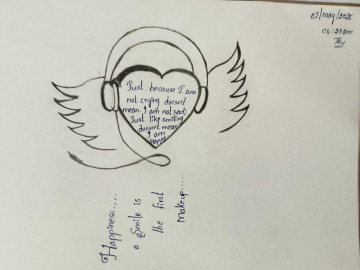 01/May/2025
Thu
Just because I am
not crying doesn't
mean I am not sad;
Just like smiling
doesn't mean
I am
happy
Happiness....
a smile is
the first
makeup....